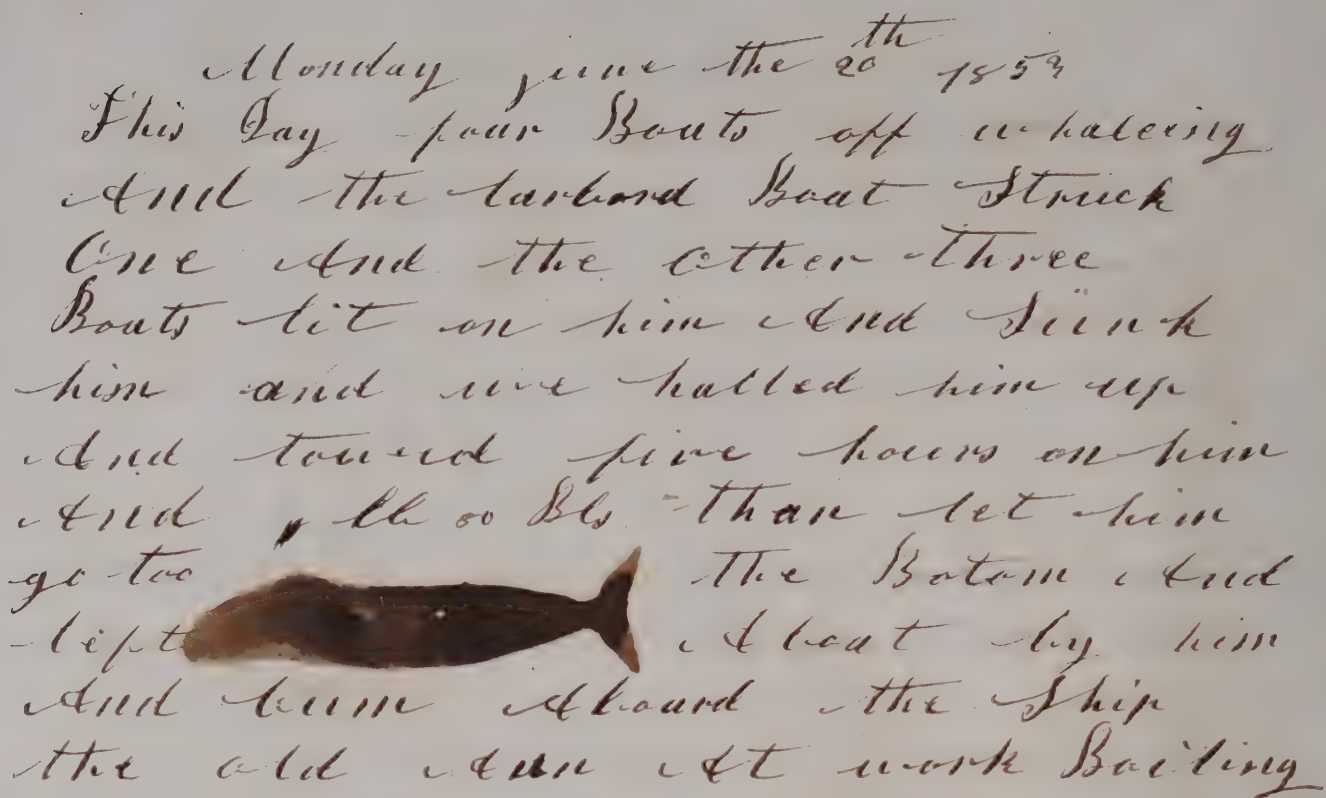 Monday june the 20th 1853
This Day four Boats off whaleing
And the larbord Boat Struck
One And the other three
Boats lit on him And Sunk
him and we halled him up
And towed five hours on him
And Bls than let him
go too the Botom And
left A boat by him
And cum Aboard the Ship
the old Ann At work Boiling